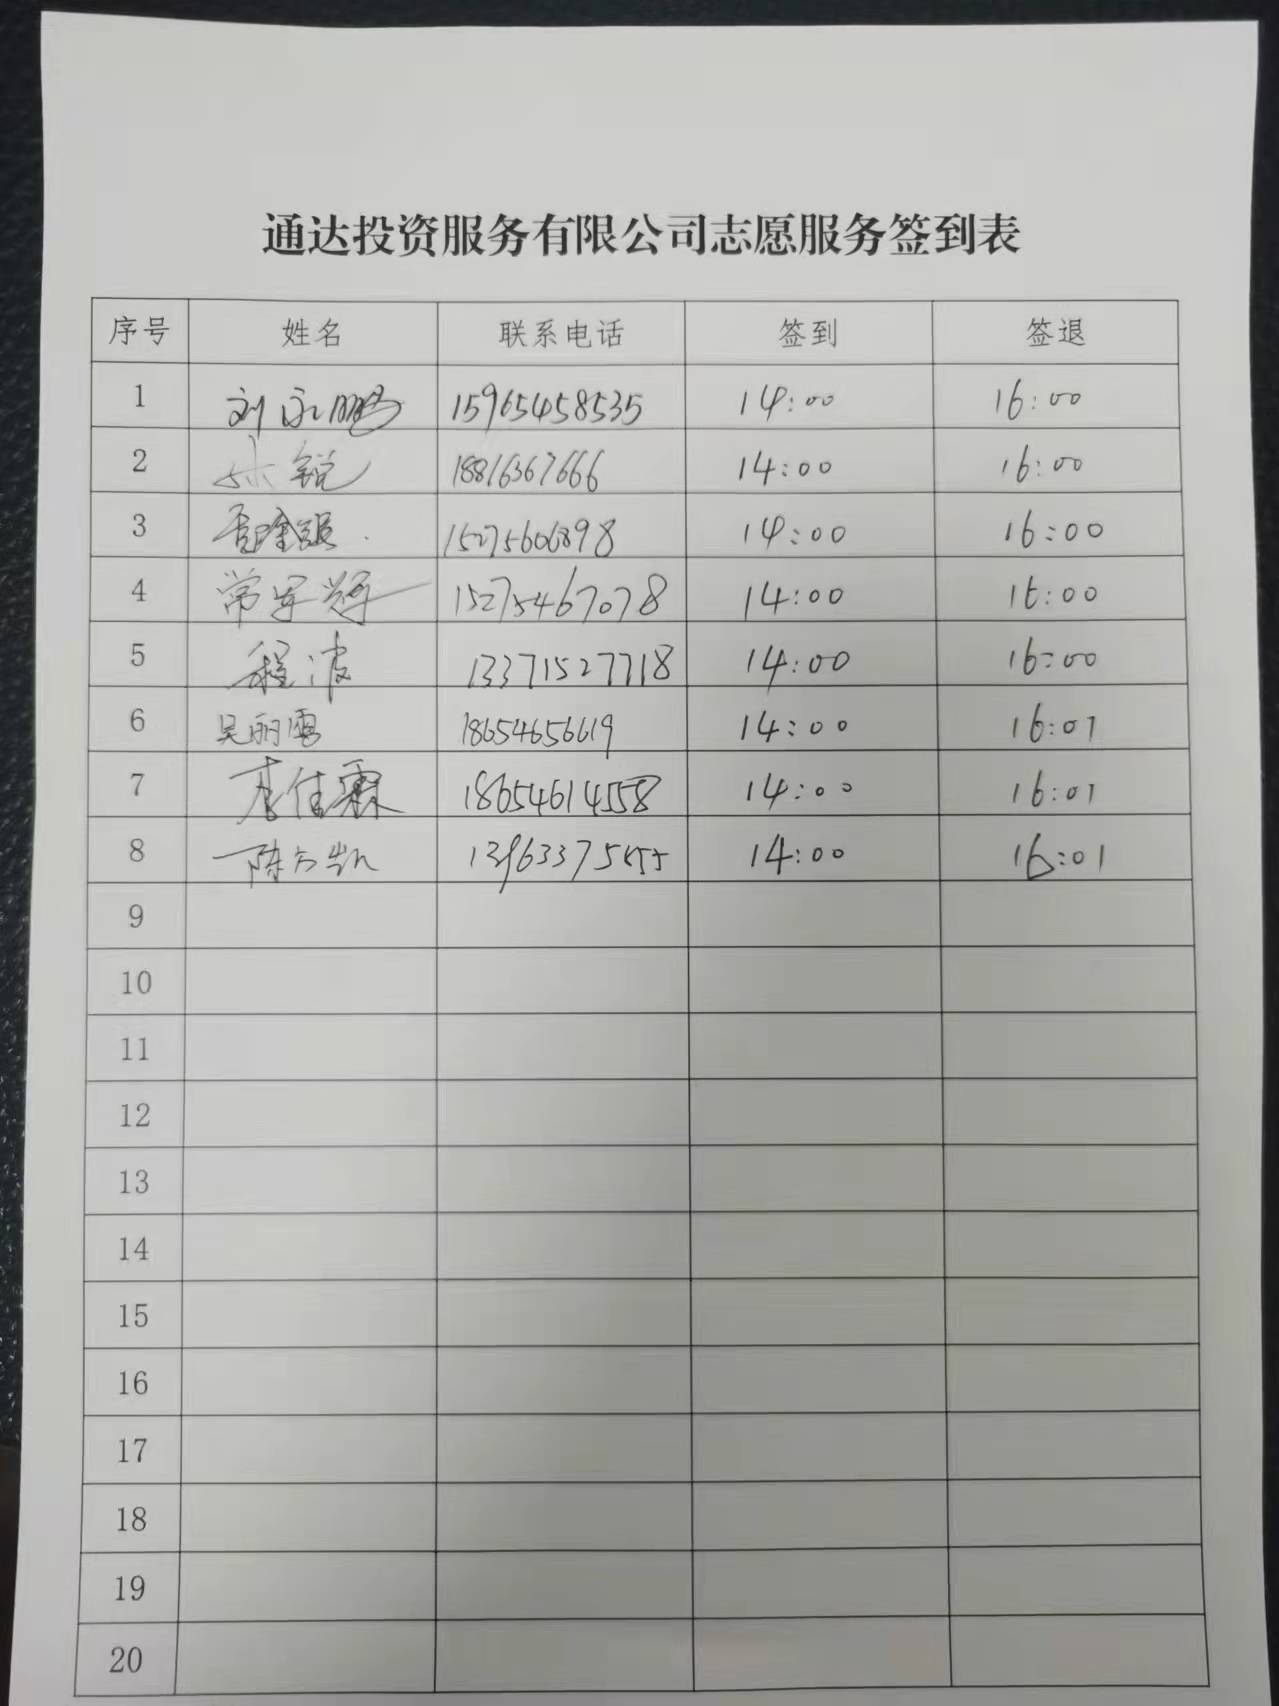 通达投资服务有限公司志愿服务签到表
序号 姓名 联系电话 签到 签退
1 刘永鹏 15965458535 14:00 16:00
2 锐 18816367666 14:00 16:00
3 14:00 16:00
4 常军辉 15275467078 14:00 16:00
5 程波 13371527718 14:00 16:00
6 吴丽雪 18654656619 14:00 16:01
7 李佳霖 18654614558 14:00 16:01
8 陈方凯 14:00 16:01
9
10
11
12
13
14
15
16
17
18
19
20